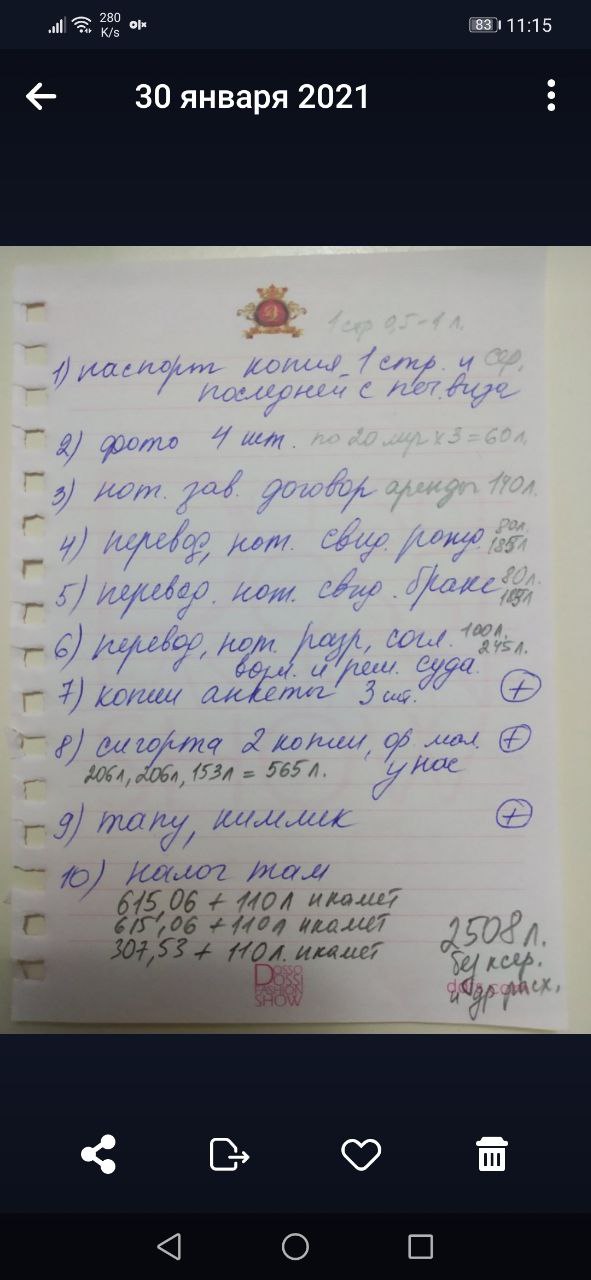 280 K/s
83 11:15
30 января 2021
1 стр 0,5-1 л.
1) паспорт копия 1 стр. и сер,
последней с печ. виза
2) фото 4 шт. по 20 лир х 3 = 60 л,
3) нот. зав. договор аренды 140 л.
4) перевод, нот. свид. рожд. 80 л. 185 л
5) перевод. нот. свид. браке 80 л. 185 л
6) перевод, нот. разр, согл. 100 л, 245 л.
и реш. суда.
7) копии анкеты 3 шт. +
8) сигорта 2 копии, ориг. +
206 л, 206 л, 153 л = 565 л. у нас
9) тапу, кимлик +
10) налог там
615,06 + 110 л икамет
615,06 + 110 л икамет
307,53 + 110 л. икамет
2508 л.
без ксер.
и др расх.
DOSSO
DOSSI
FASHION
SHOW